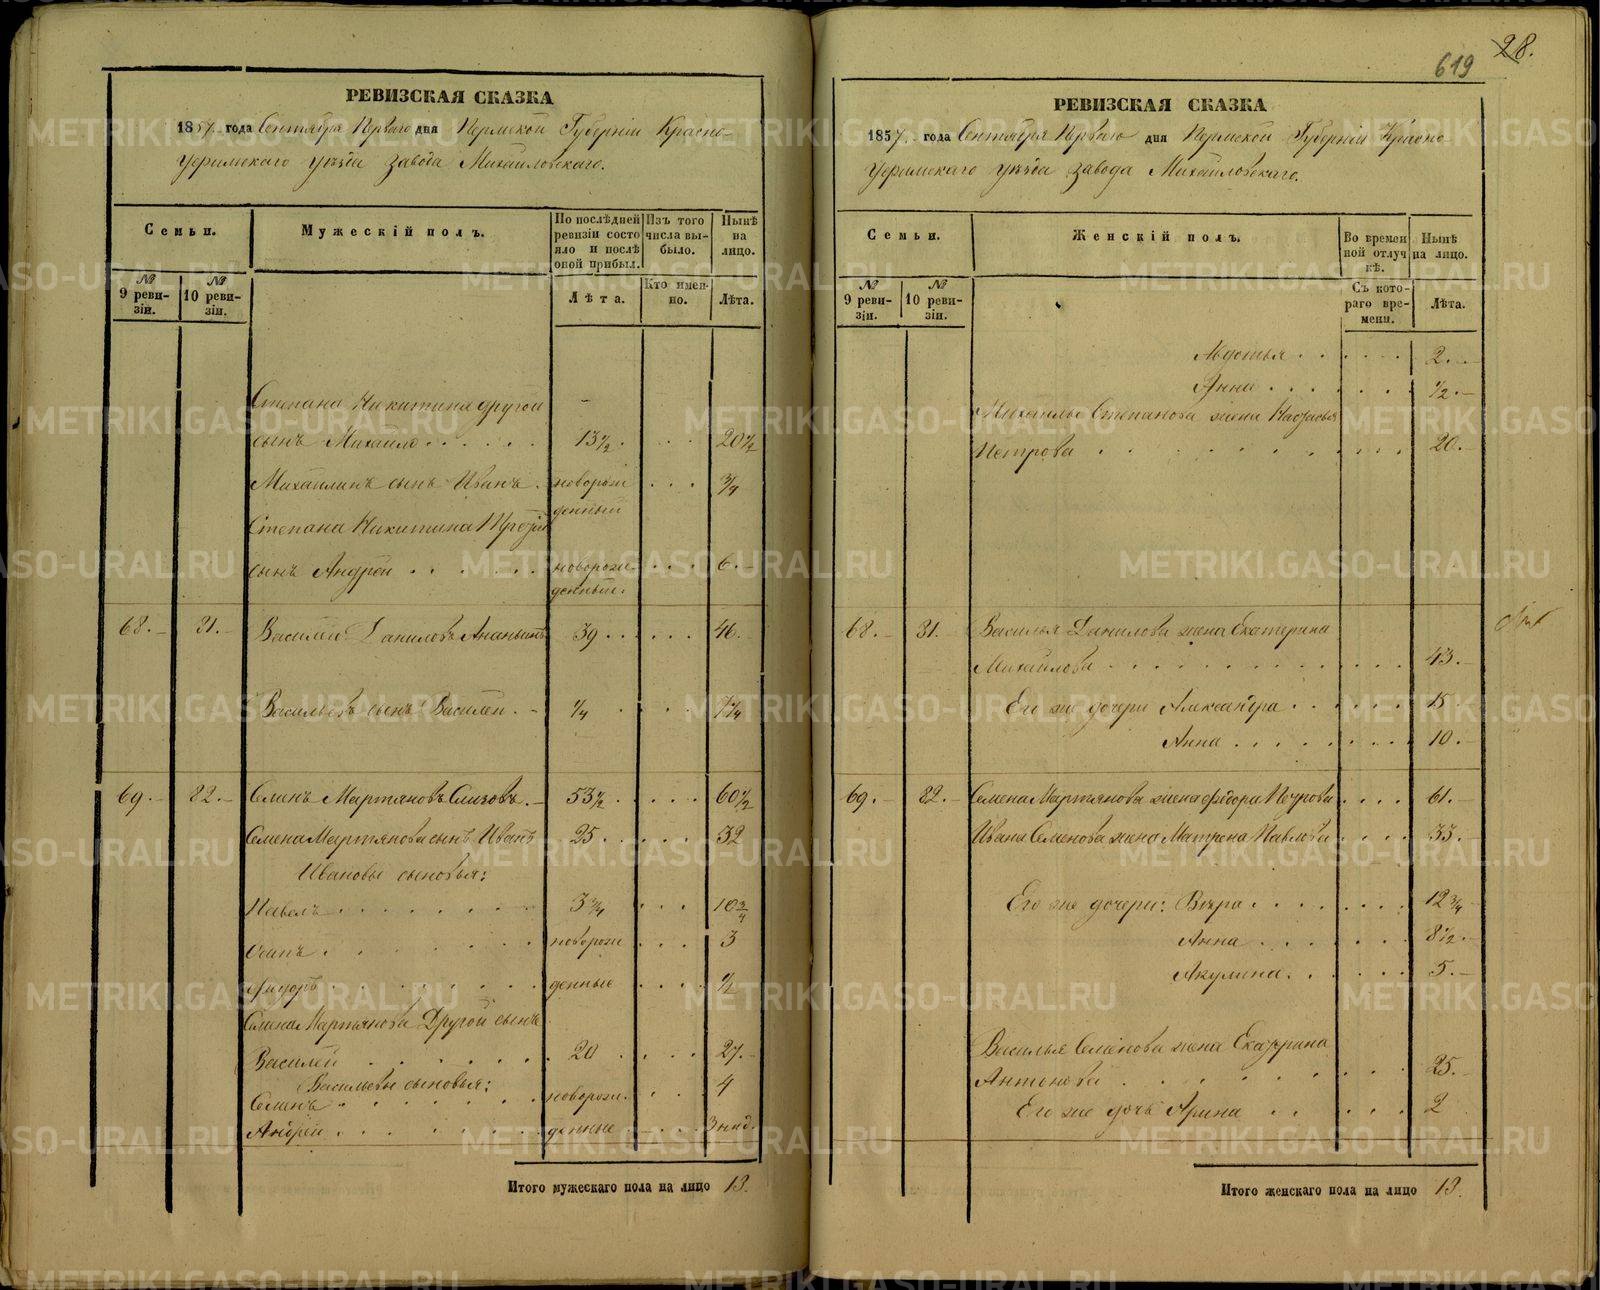 28.
619
РЕВИЗСКАЯ СКАЗКА
1857 года Сентября Перваго дня Пермской Губерніи Красно-
уфимскаго уѣзда завода Михайловскаго.
Семьи.
Мужескій полъ.
По послѣдней ревизіи состояло и послѣ оной прибыл.
Изъ того числа выбыло.
Нынѣ на лицо.
№ 9 ревизіи.
№ 10 ревизіи.
Лѣта.
Кто именно.
Лѣта.
Степана Никитина другой
сынъ Михайло . . . . . 13½ . . . . 20½
Михайлинъ сынъ Иванъ . новорож- . . . ¾
денный
Степана Никитина
сынъ Андрей . . . . . новорож- . . . 6. -
денный.
68. - 81. - Василей Даниловъ Ананьинъ 39 . . . . . 46.
Васильевъ сынъ Василей . - ¼ . . . . 7¼
69. - 82. - Семенъ Мартяновъ . - 53½ . . . . . 60½
Семена Мартянова сынъ Иванъ 25 . . . . . 32
Ивановы сыновья:
Павелъ . . . . . . 3¾ . . . 10¾
Осипъ . . . . . . новорож . . . 3
Фидоръ . . . . . . денные . . . ½
Семена Мартянова Другой сынъ
Василей . . . . . . 20 . . . . 27. -
Васильевы сыновья:
Семенъ . . . . . . новорож. . . . 4
Андрей . . . . . . денные . . . 3 нид.
Итого мужескаго пола на лицо 13.
РЕВИЗСКАЯ СКАЗКА
1857 года Сентября Перваго дня Пермской Губерніи Красно-
уфимскаго уѣзда завода Михайловскаго.
Семьи.
Женскій полъ.
Во временной отлучкѣ.
Нынѣ на лицо.
№ 9 ревизіи.
№ 10 ревизіи.
Съ котораго времени.
Лѣта.
Авдотья . . . . . . 2. . -
Анна . . . . . . ½. -
Михайлы Степанова жена Настасья
Петрова . . . . . . 20. -
68. - 81. - Василья Данилова жена Екатерина
Михайлова . . . . . . 43. -
Его же дочери Александра . . . . . . 15. -
Анна . . . . . . 10. -
69. - 82. - Семена Мартянова жена Фёдора Петрова . . . . 61. -
Ивана Семенова жена Матрена Павлова . . . . 33. -
Его же дочери: Вѣра . . . . . . 12¾
Анна . . . . . . 8½. -
Акулина . . . . . . 5. -
Василья Семенова жена Екатерина
Антонова . . . . . . 25. -
Его же дочь Арина . . . . . 2
Итого женскаго пола на лицо 13.
METRIKI.GASO-URAL.RU